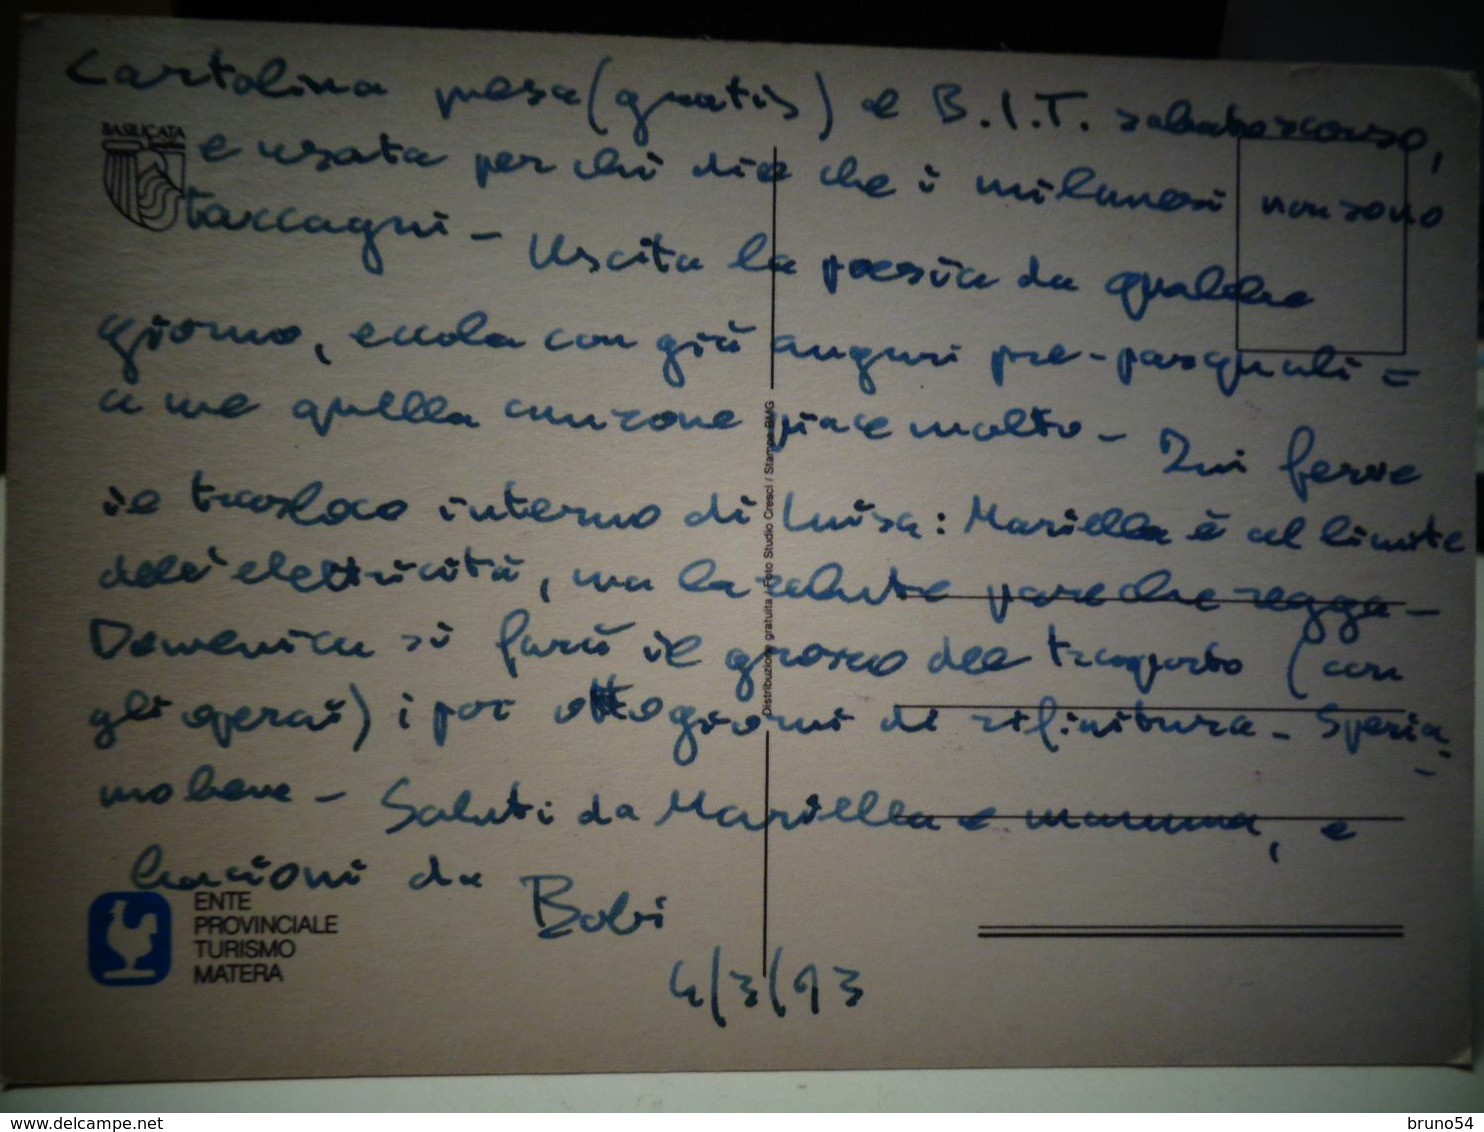 Cartolina presa (gratis) al B.I.T. sabato scorso,
BASILICATA
e usata per chi dice che i milanesi non sono
taccagni - Uscita la poesia da qualche
giorno, eccola con già auguri pre-pasquali =
a me quella canzone piace molto - Qui ferve
il trasloco interno di Luisa: Mariella è al limite
dell'elettricità, ma la salute pare che regga -
Domenica si farà il grosso del trasporto (con
gli operai) i poi otto giorni di rifinitura - Speria-
mo bene - Saluti da Mariella e mamma, e
bacioni da Bobi
4/3/93
ENTE
PROVINCIALE
TURISMO
MATERA
Distribuzione gratuita / Foto Studio Cresci / Stampa BMG
delcampe.net
bruno54